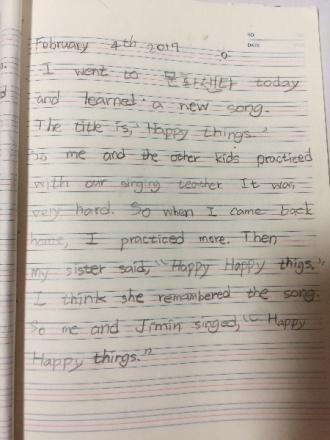 NO.
DATE
February 4th 2017
I went to 문화센터 today
and learned a new song.
The title is, 'Happy things.'
So me and the other kids practiced
with our singing teacher. It was
very hard. So when I came back
home, I practiced more. Then
my sister said, "Happy Happy thigs."
I think she remambered the song.
So me and Jimin singed, "Happy
Happy things."